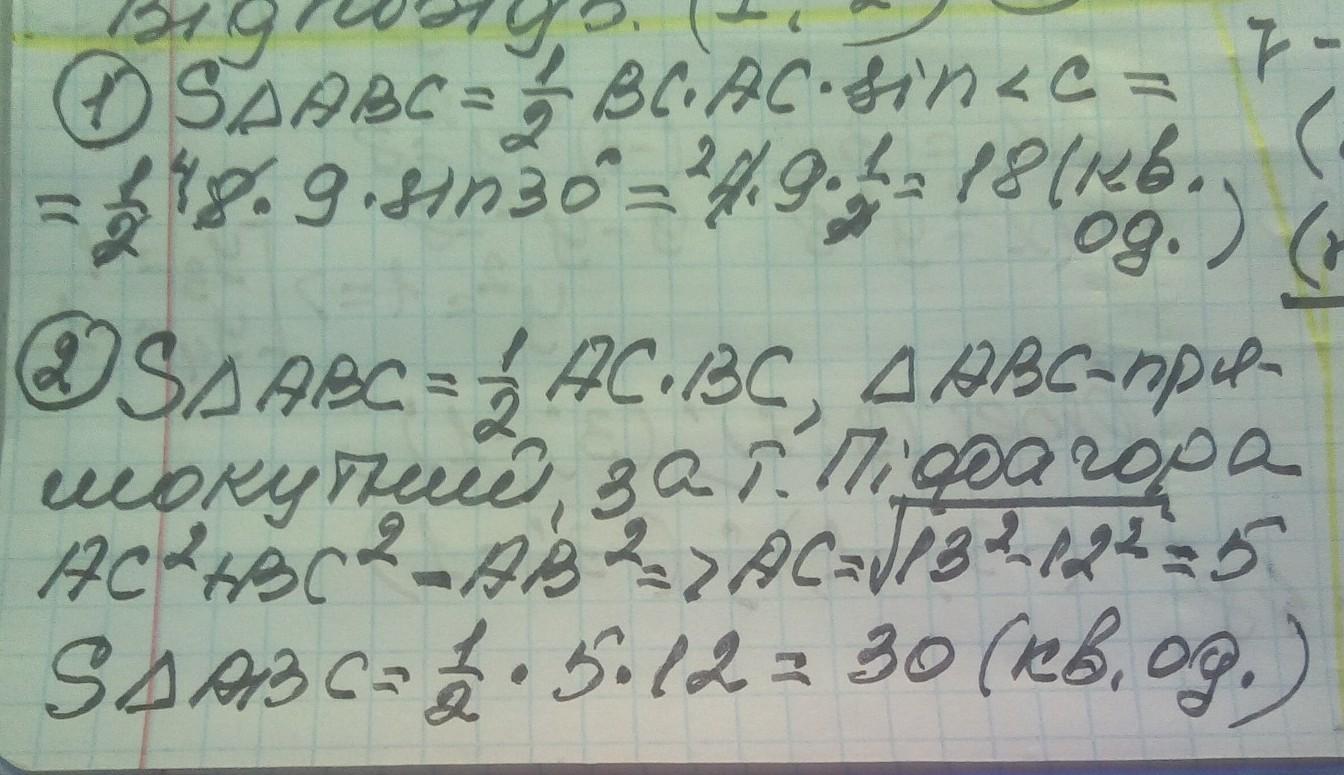 Відповідь: (1; 2)
① S△ABC = 1/2 BC · AC · sin < C =
= 1/2 ⁴8 · 9 · sin30° = ²4 · 9 · 1/2 = 18 (кв.
од.)
② S△ABC = 1/2 AC · BC, △ABC - пря-
мокутний, за т. Піфагора
AC² + BC² - AB² => AC = √13² - 12² = 5
S△ABC = 1/2 · 5 · 12 = 30 (кв. од.)